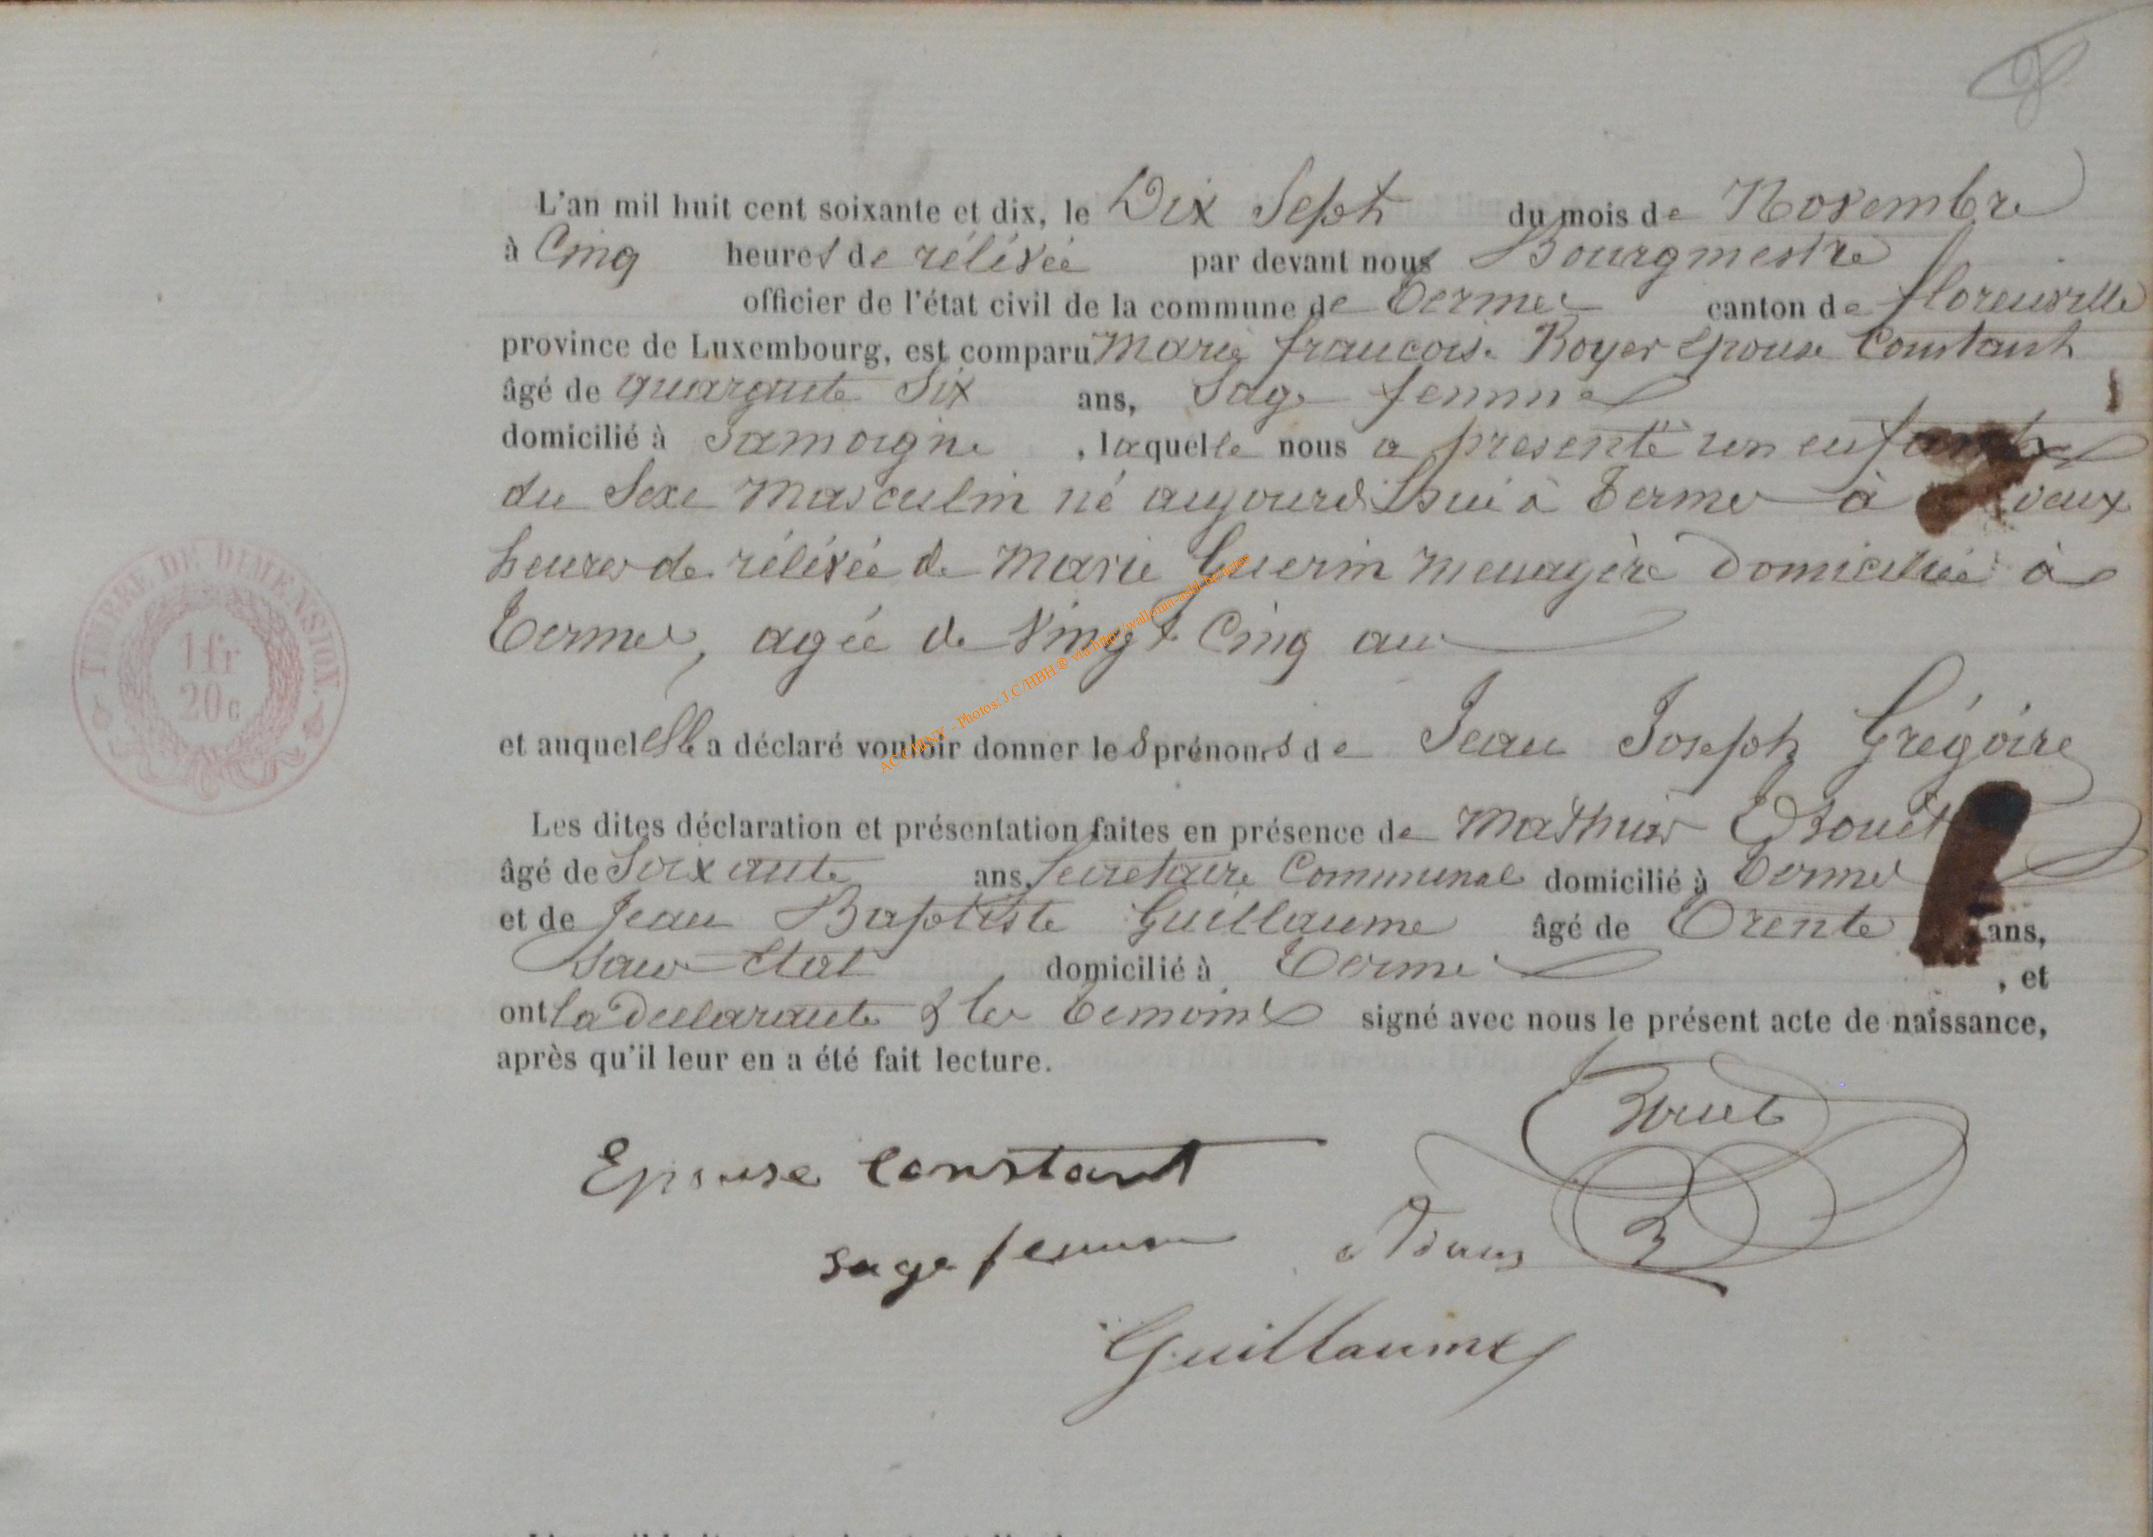 L'an mil huit cent soixante et dix, le Dix Sept du mois de Novembre
à Cinq heures de rélévée par devant nous Bourgmestre
officier de l'état civil de la commune de Termes canton de florenville
province de Luxembourg, est comparu Marie francoise Royer épouse Constant
âgé de quarante Six ans, Sage femme
domicilié à Jamoigne, laquelle nous a présenté un enfant
du Sexe Masculin né aujourd'hui à Termes à Deux
heures de rélévée de Marie Guerin menagère Domiciliée à
Termes, agée de Vingt Cinq ans
et auquel elle a déclaré vouloir donner les prénoms de Jean Joseph Grégoire
Les dites déclaration et présentation faites en présence de Mathias
âgé de Soixante ans, Secretaire Communal domicilié à Termes
et de Jean Baptiste Guillaume âgé de Trente ans,
Sans Etat domicilié à Termes, et
ont la Declarante & les Temoins signé avec nous le présent acte de naissance,
après qu'il leur en a été fait lecture.
Epouse Constant
sage femme
Guillaume
TIMBRE DE DIMENSION.
1 fr
20 c